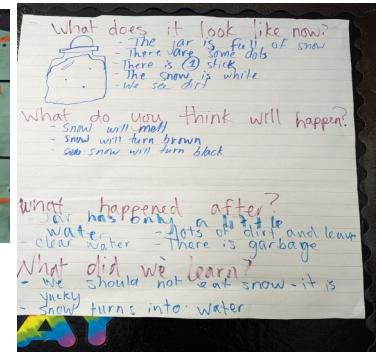 What does it look like now?
- The jar is full of snow
- There are some dots
- There is (1) stick
- The snow is while
- We see dirt
What do you think will happen?
- snow will melt
- snow will turn brown
- snow will turn black
What happened after?
- Jar has only a little
water
- lots of dirt and leave
- clear water - There is garbage
What did we learn?
- We should not eat snow - it is
yucky
- snow turns into water
AY